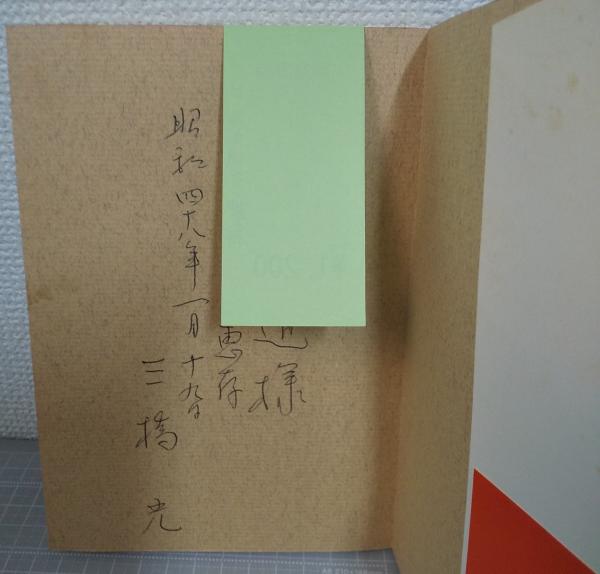 様
恵存
昭和四十八年一月十九日
三橋 光